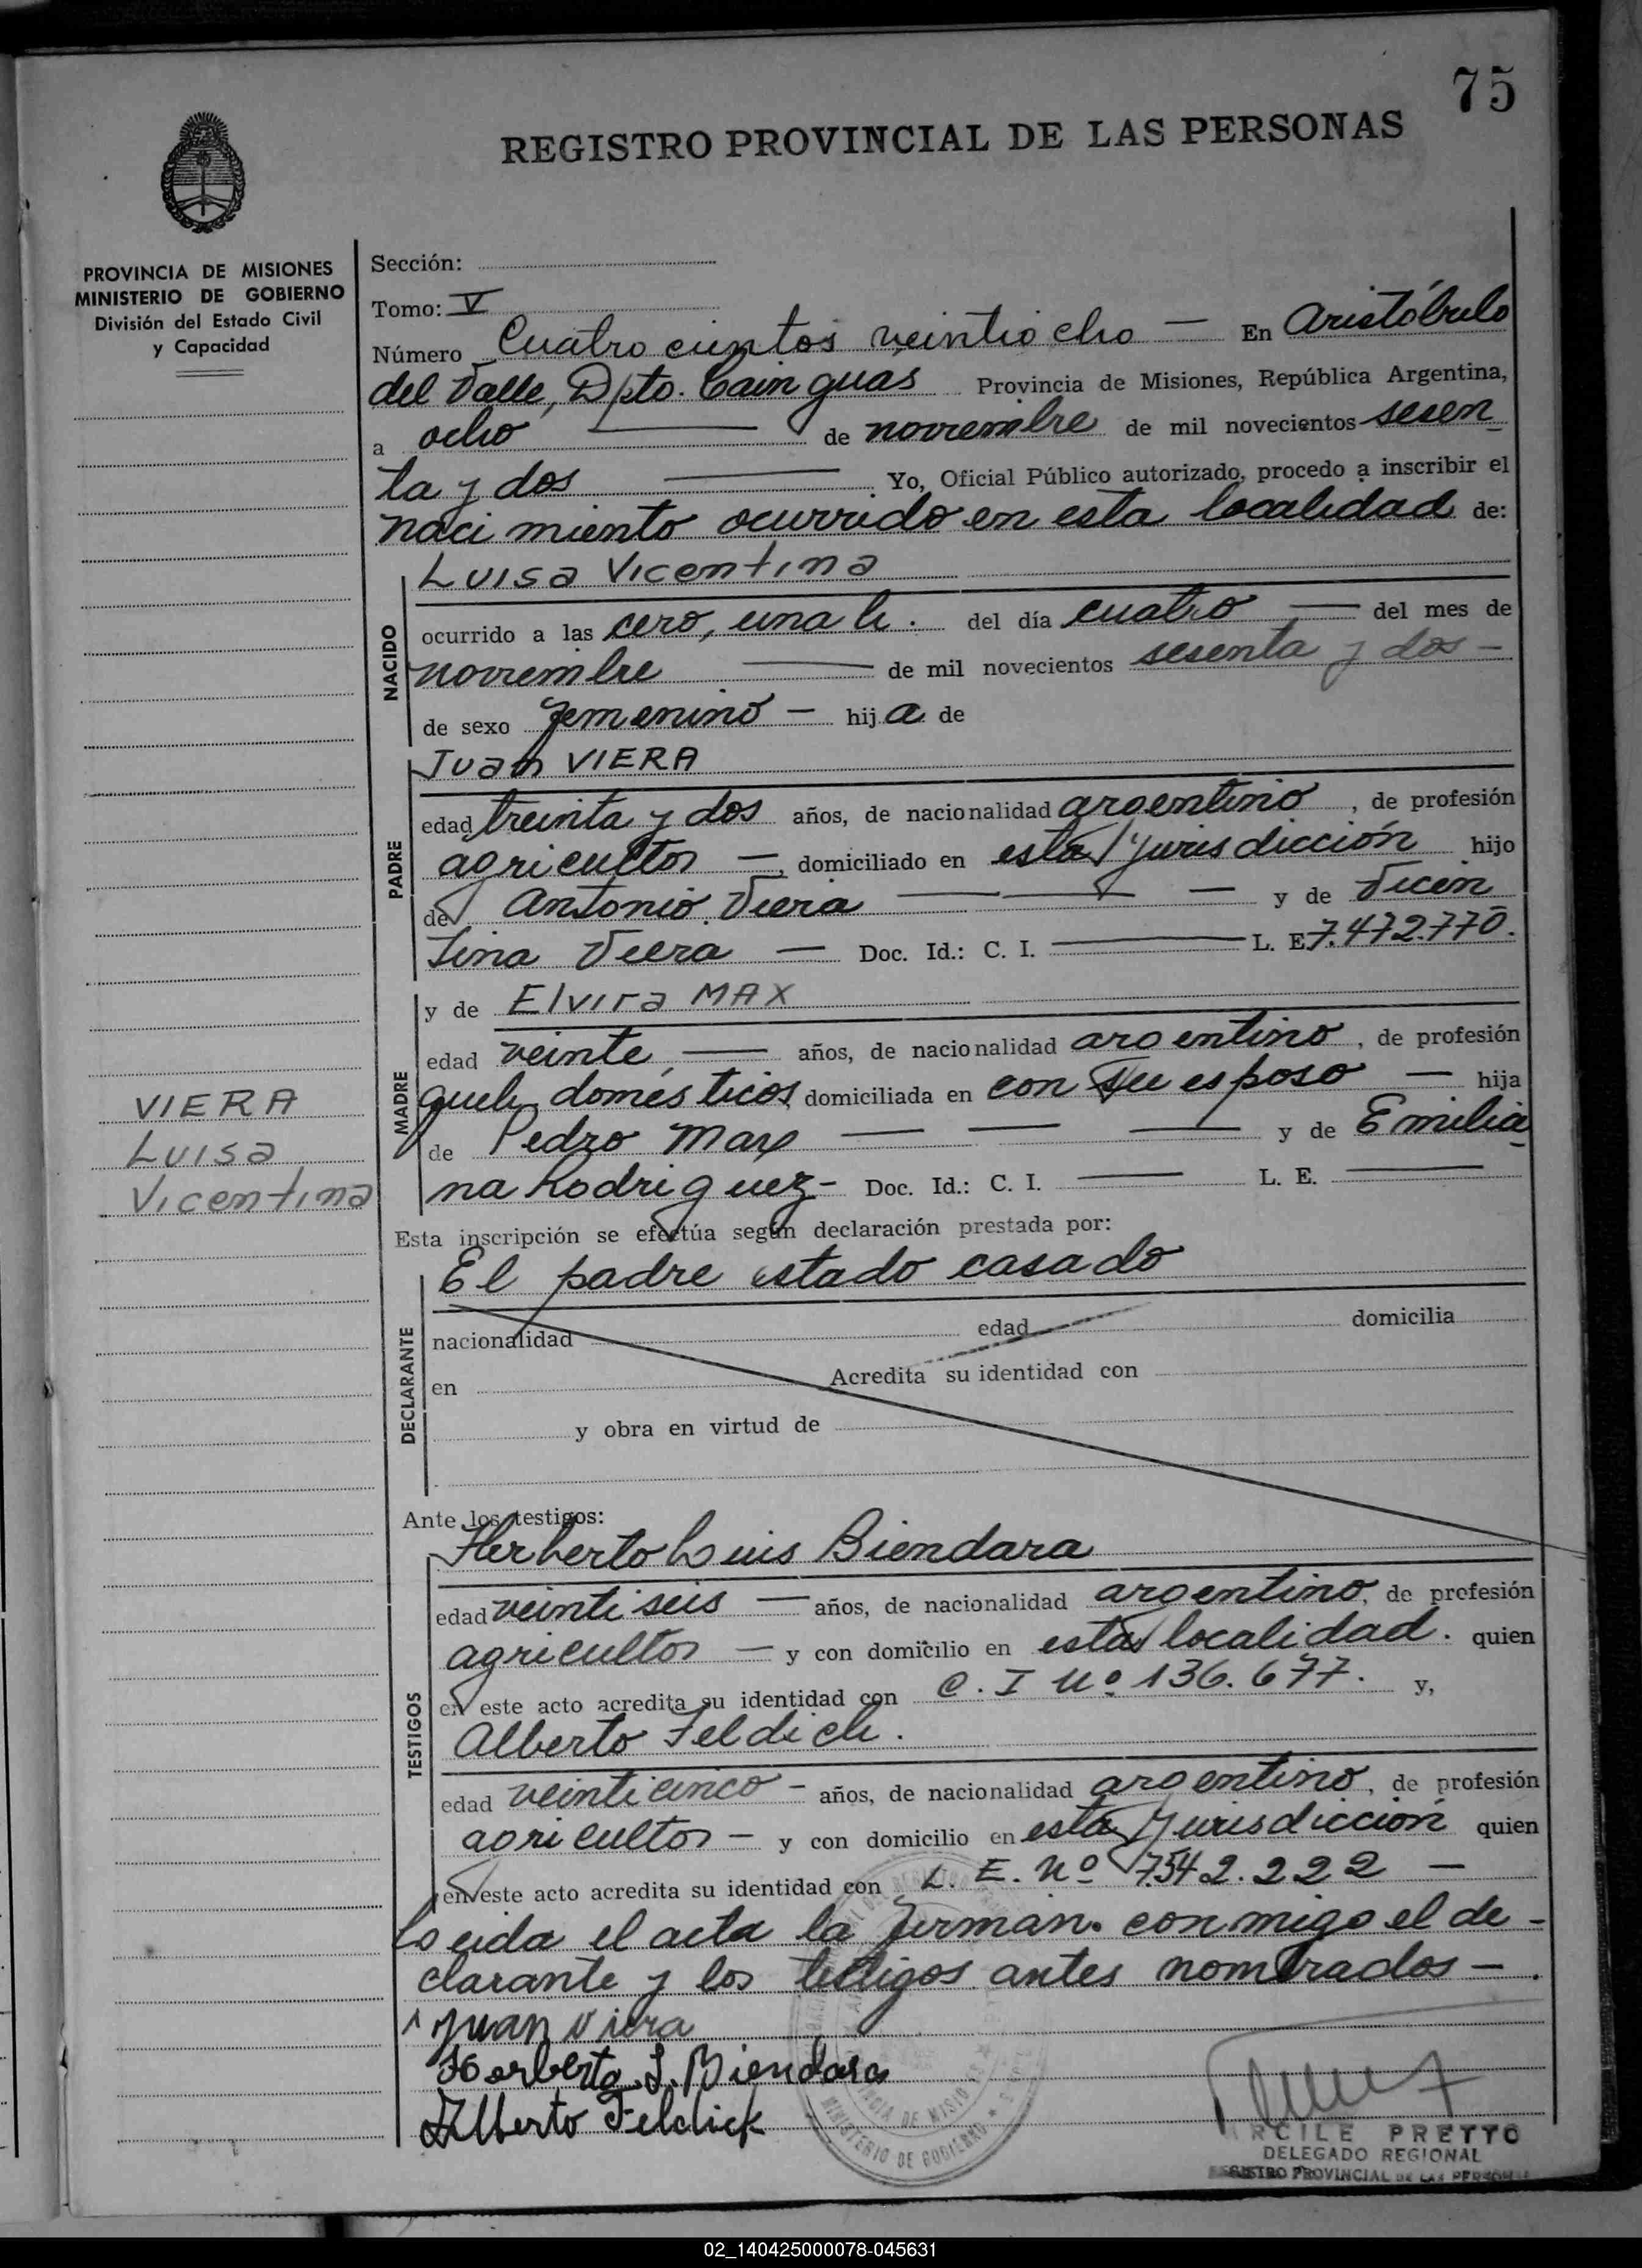 75
REGISTRO PROVINCIAL DE LAS PERSONAS
PROVINCIA DE MISIONES
MINISTERIO DE GOBIERNO
División del Estado Civil
y Capacidad
Sección:
Tomo: V
Número Cuatrocientos veintiocho — En Aristóbulo
del Valle, Dpto. Cainguas Provincia de Misiones, República Argentina,
a ocho — de noviembre de mil novecientos sesen
ta y dos — Yo, Oficial Público autorizado, procedo a inscribir el
nacimiento ocurrido en esta localidad de:
Luisa Vicentina
NACIDO
ocurrido a las cero, una h. del día cuatro — del mes de
noviembre — de mil novecientos sesenta y dos —
de sexo femenino — hija de
Juan VIERA
PADRE
edad treinta y dos años, de nacionalidad argentino, de profesión
agricultor —, domiciliado en esta jurisdicción hijo
de Antonio Viera — — — y de Vicen
tina Viera — Doc. Id.: C. I. — L. E. 7.472.770.
y de Elvira MAX
MADRE
edad veinte, — años, de nacionalidad argentino, de profesión
queh. domésticos domiciliada en con su esposo — hija
de Pedro Max — — — y de Emilia
na Rodriguez - Doc. Id.: C. I. — L. E. —
VIERA
Luisa
Vicentina
Esta inscripción se efectúa según declaración prestada por:
El padre estado casado
DECLARANTE
nacionalidad edad domicilia
en Acredita su identidad con
y obra en virtud de
Ante los testigos:
Herberto Luis Biendara
TESTIGOS
edad veintiseis — años, de nacionalidad argentino, de profesión
agricultor — y con domicilio en esta localidad. quien
en este acto acredita su identidad con C. I Nº 136.677. y,
Alberto Feldich.
edad veinticinco - años, de nacionalidad argentino, de profesión
agricultor — y con domicilio en esta jurisdicción quien
en este acto acredita su identidad con L. E. Nº 7.542.222 —
Leida el acta la firman. conmigo el de-
clarante y los testigos antes nombrados —.
Juan Viera
Herberto L. Biendara
Alberto Feldick
PROVINCIA DE MISIONES
MINISTERIO DE GOBIERNO
RCILE PRETTO
DELEGADO REGIONAL
REGISTRO PROVINCIAL DE LAS PERSONAS
02_140425000078-045631